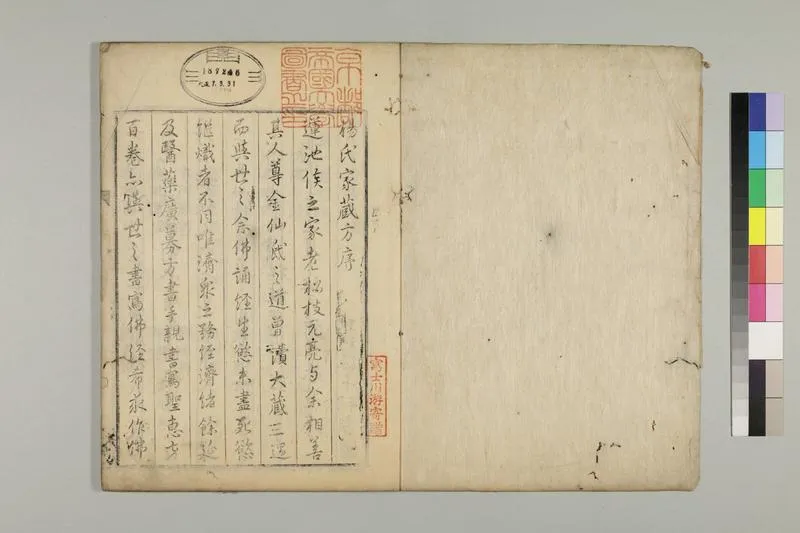 京都
帝國大學
圖書之印
189246
大正7.3.31
楊氏家蔵方序
蓮池侯之家老松枝元亮与余相善
其人尊金仙氏之道曽讀大蔵三遍
而与世之念佛誦経生慾未盡死慾
熾者不同唯濟衆之務経濟緒餘
及醫藥廣募方書手親書寫聖惠方
百卷亦與世之書寫佛経希求作佛
富士川游寄贈